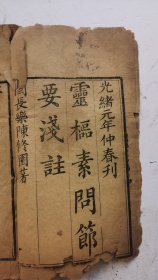 光緒元年仲春刊
靈樞素問節
要淺註
閩長樂陳修園著